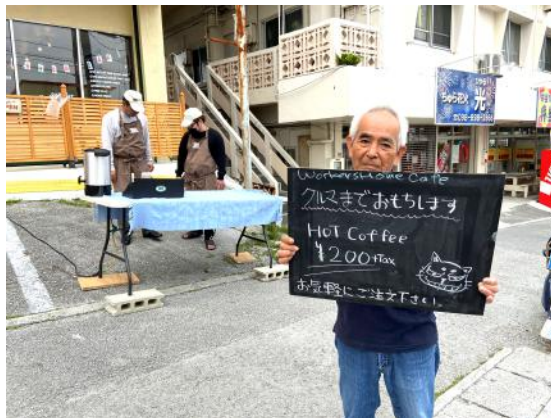 WorkersHome Cafe
クルマまでおもちします
HOT Coffee
¥200+Tax
お気軽にご注文下さい。